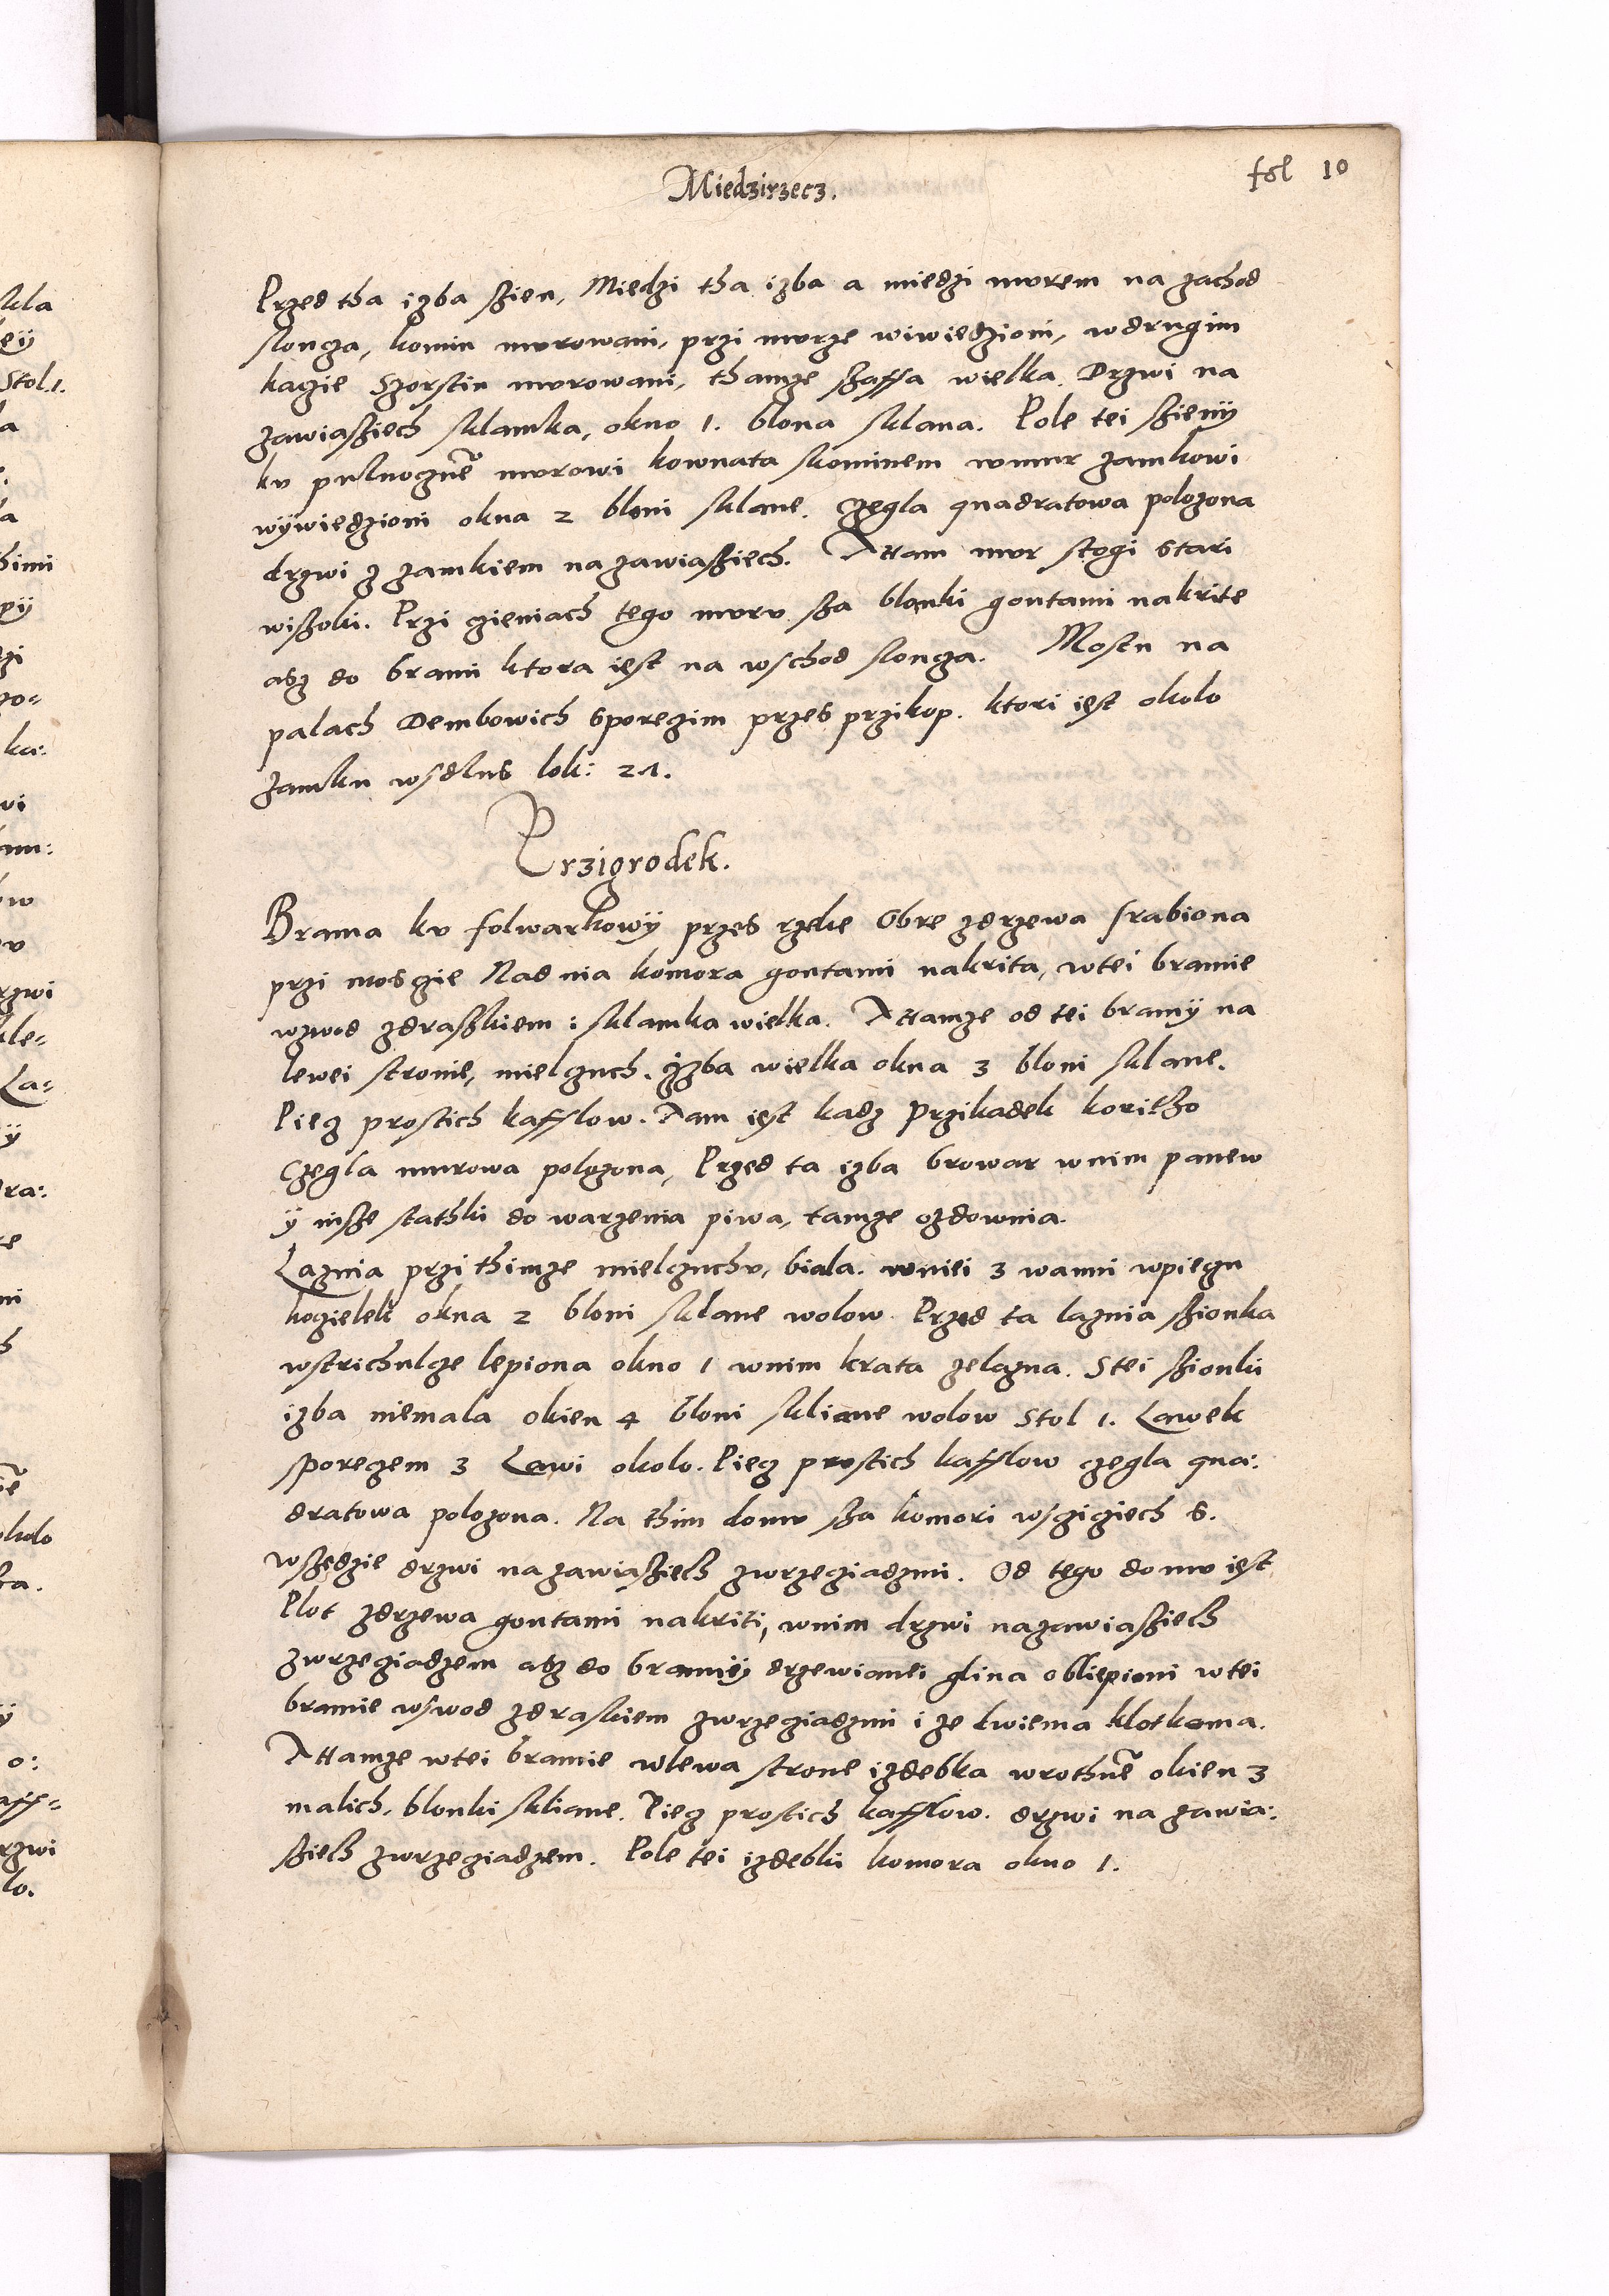 Miedzirzecz.
fol 10
Przed tha izba szien, Miedzi tha izba a miedzi mvrem na zachod
slonca, komin mvrowani, przi mvrze wiwiedzioni, w drugim
kącie Szorstin mvrowani, thamze szaffa wielka. Drzwi na
zawiasziech sklamka, okno 1. blona sklana. Pole tei szieny
kv pulnocznē mvrowi kownata skominem w mur zamkowi
wywiedzioni okna 2 bloni sklane. Czegla quadratowa polozona
drzwi z zamkiem na zawiasziech. A tam mvr srogi stari
wiszoki. Przi czieniach tego mvrv sza blanki gontami nakrite
asz do brami ktora iest na wschod slonca. Mosth na
palach Dembowich sporęczim przes przikop. ktori iest okolo
zamku wsdlus lok: 21.
Przigrodek.
Brama kv folwarkowy przes rzeke Obre zdrzewa srabiona
przi moscie Nad nia komora gontami nakrita, w tei bramie
wzwod zdraszkiem i sklamka wielka. A tamze od tei bramy na
lewei stronie, mielczuch. Izba wielka okna 3 bloni sklane.
Piecz prostich kafflow. Tam iest kadz Przikadek koritho
Czegla murowa polozona, Przed ta izba browar w nim panew
ÿ insze stathki do warzenia piwa, tamze ozdownia.
Laznia przi thimze mielczuchv, biala. w niei 3 wanni w piecu
kocielek okna 2 bloni sklane wolow Przed ta laznia szionka
wstrichulcze lepiona okno 1 w nim krata zelazna. Stei szionki
izba niemala okien 4 bloni skliane wolow Stol 1. Lawek
sporęczem 3 Lawi okolo. Piecz prostich kafflow czegla qua:
dratowa polozona. Na thim domv sza komori wscziciech 6.
wszędzie drzwi na zawiasziech zwrzecziadzmi. Od tego domv iest
Plot zdrzewa gontami nakriti, w nim drzwi na zawiasziech
zwrzecziadzem asz do bramÿ drzewianei glina obliepioni w tei
bramie wswod zdraskiem zwrzecziadzmi i ze dwiema klotkama.
A tamze w tei bramie w lewa strone izdebka wrothnē okien 3
malich, blonki skliane. Piecz prostich kafflow. drzwi na zawia:
sziech zwrzecziadzem. Pole tei izdebki komora okno 1.